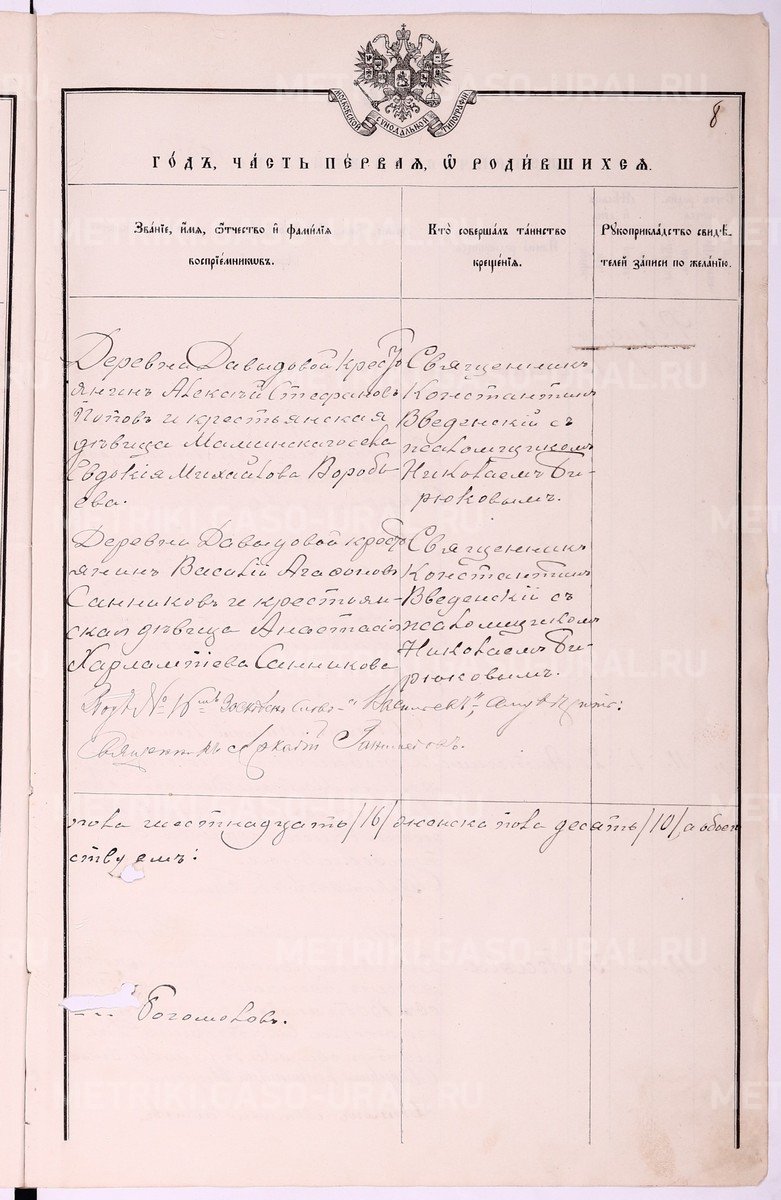 МОСКОВСКОЙ СѴНОДАЛЬНОЙ ТИПОГРАФІИ
8
ГО́ДЪ, ЧА́СТЬ ПЕ́РВАЯ, Ѽ РОДИ́ВШИХСЯ.
Зва́нїе, и́мя, ѻ҆́тчество и҆ фами́лїя
воспрїе́мниковъ.
Кто̀ соверша́лъ та́инство
креще́нїя.
Рꙋкоприкла́дство свидѣ́-
телей за́писи по жела́нїю.
Деревни Давыдовой кресть
янинъ Алексѣй Стефановъ
Поповъ и крестьянская
дѣвица Маминскаго села
Евдокія Михайлова Воробь
ева.
Священникъ
Константинъ
Введенскій съ
псаломщикомъ
Николаемъ Би-
рюковымъ.
Деревни Давыдовой кресть
янинъ Василій Агафоновъ
Санниковъ и крестьян-
ская дѣвица Анастасія
Харлампіева Санникова
Священникъ
Константинъ
Введенскій съ
псаломщикомъ
Николаемъ Би-
рюковымъ.
Подъ № 16
Священникъ
пола шестнадцать /16/ женска пола десять /10/ а обоего
ствуемъ:
Богомоловъ.
METRIKI.GASO-URAL.RU